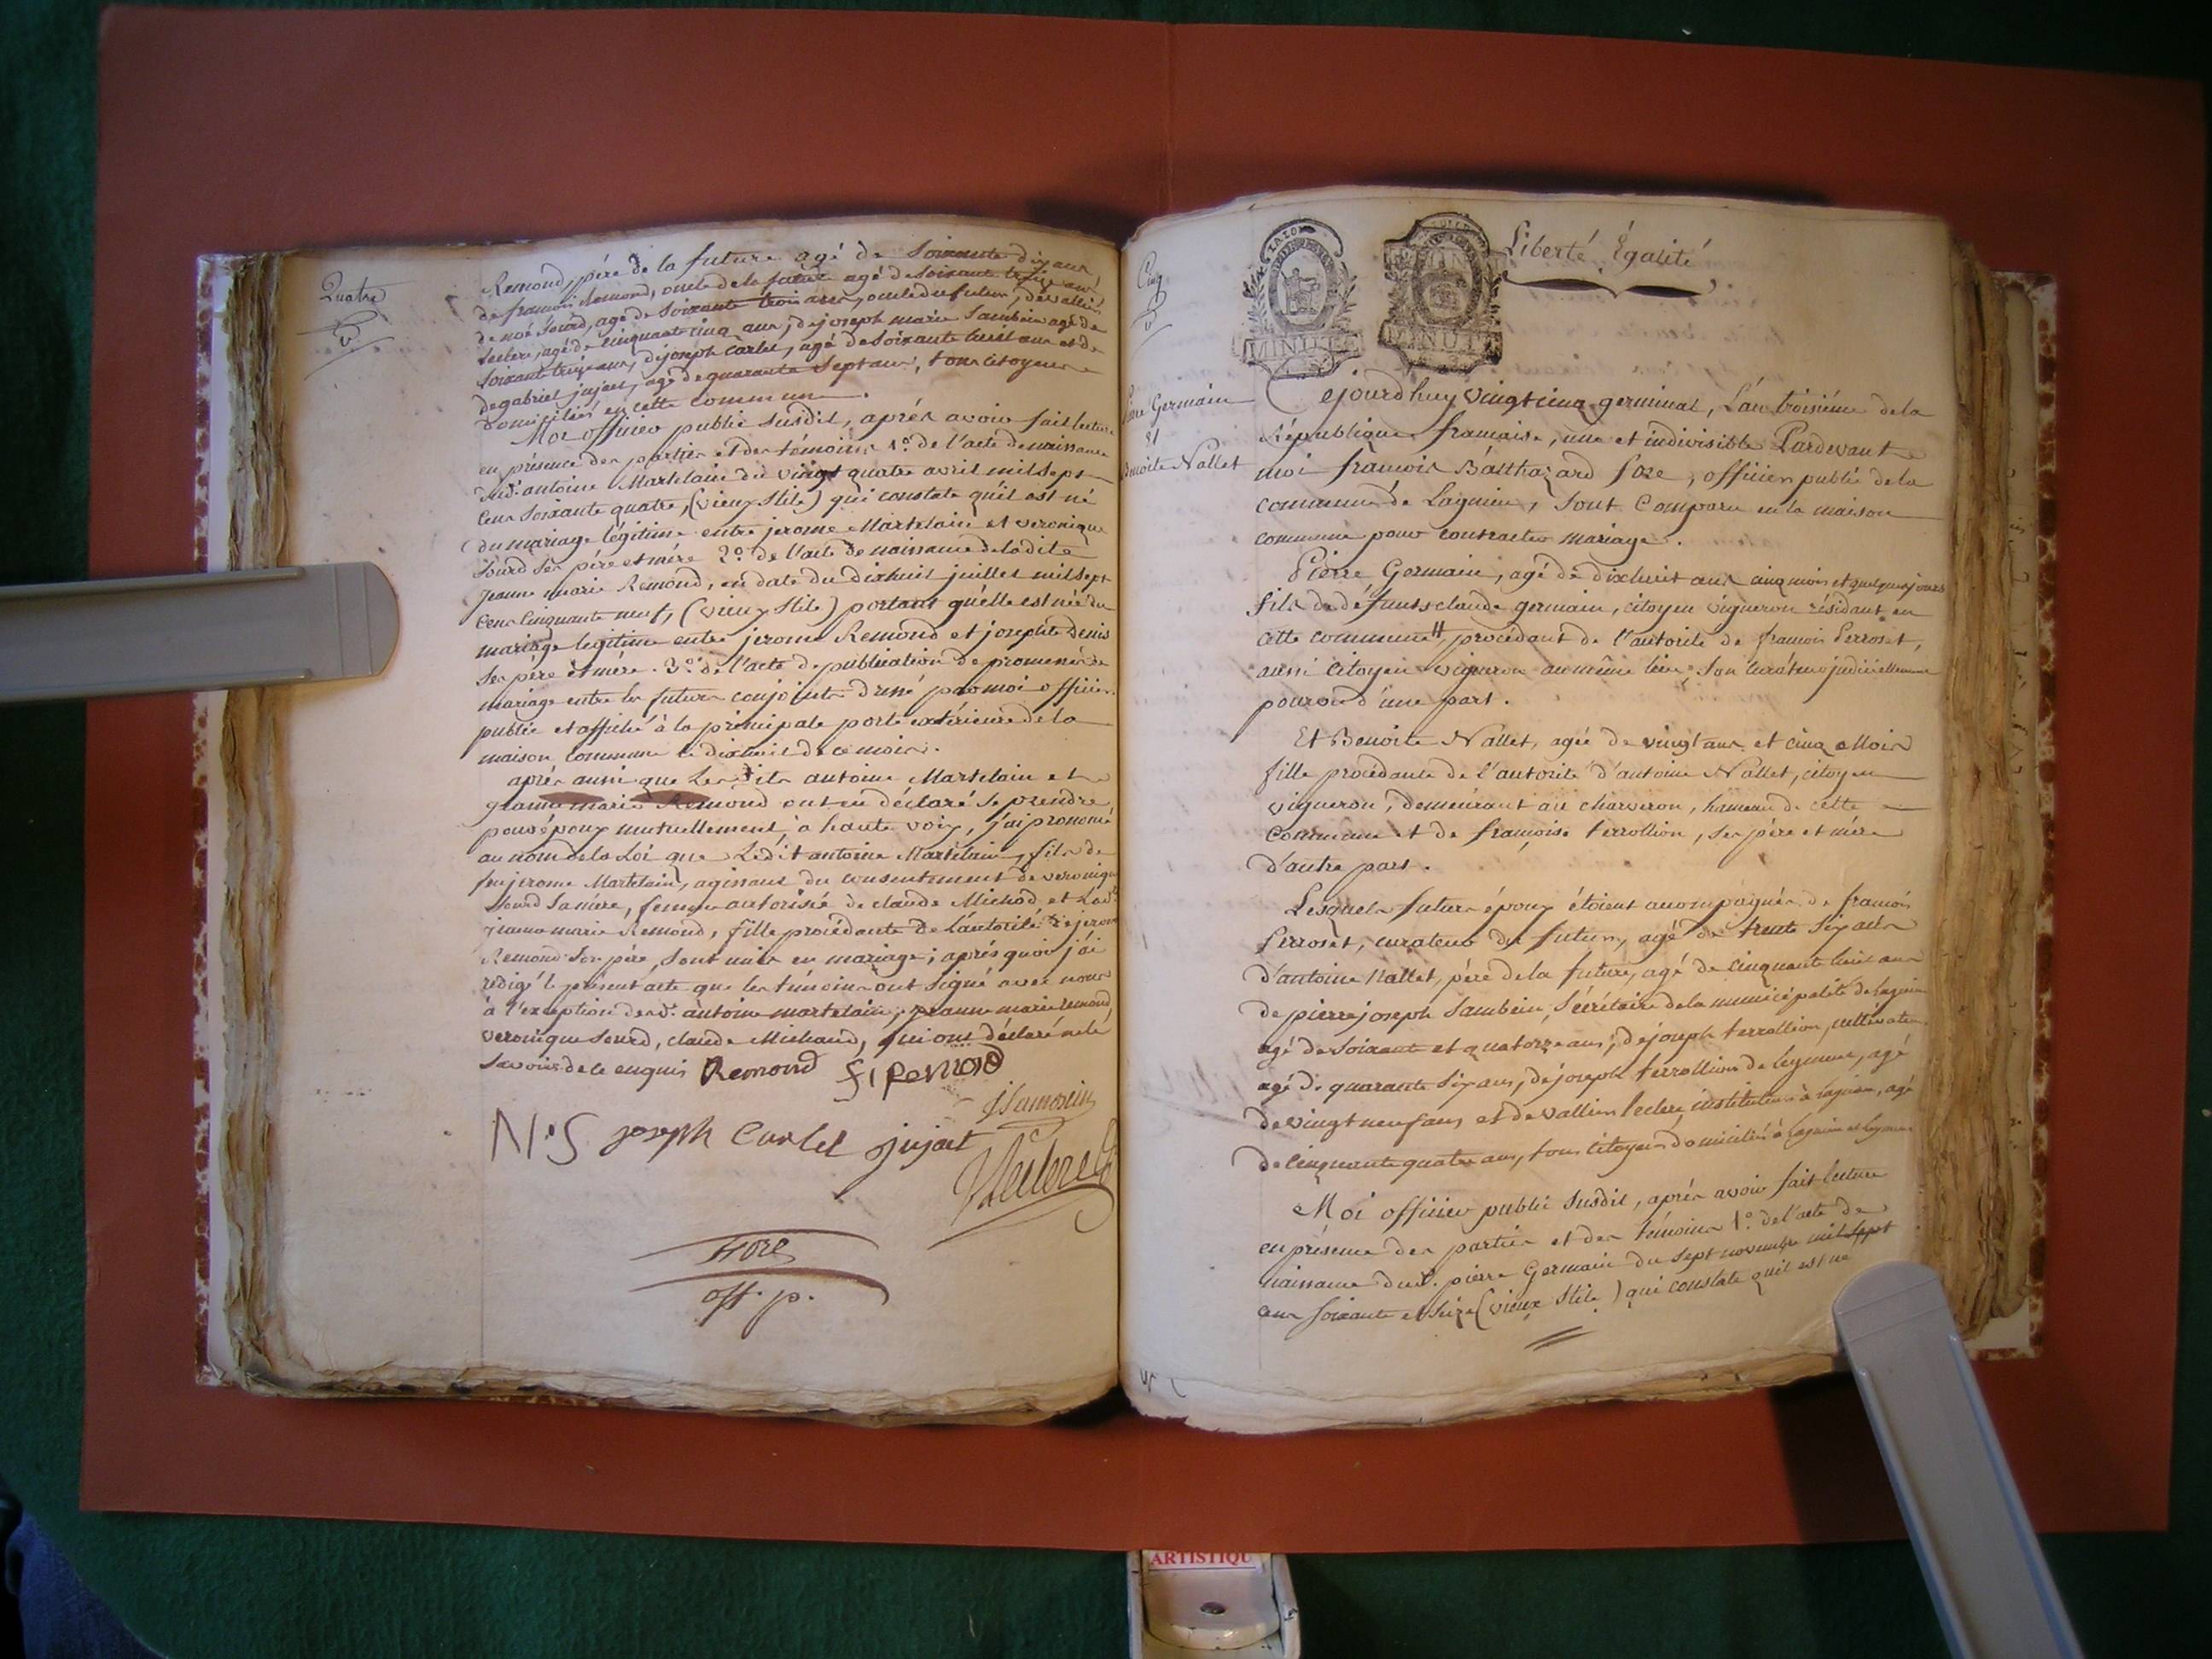 Quatre
Remond, père de la future agé de Soixante dix ans,
de francois Remond, oncle de la future agé de Soixante treize ans
de noé Sourd, agé de Soixante trois ans, oncle du futur, de vallier
Leclerc, agé de Cinquante cinq ans, de joseph marie Sambein agé de
Soixante treize ans, de joseph Carlet, agé de Soixante huit ans et de
de gabriel jujat, agé de quarante Sept ans, tous citoyens
domiciliés en cette commune.
Moi officier public susdit, après avoir fait lecture
en présence des parties et des témoins 1º. de l'acte de naissance
dud. antoine Martelain du vingt quatre avril mil Sept
Cens Soixante quatre, (vieux Stile) qui constate qu'il est né
du mariage légitime entre jerome Martelain et veronique
Sourd ses père et mère 2º. de l'acte de naissance de ladite
jeanne marie Remond, en date du dixhuit juillet mil Sept
Cens Cinquante neuf, (vieux Stile) portant qu'elle est née du
mariage legitime entre jerome Remond et josephte Denis
Ses père et mère. 3º. de l'acte de publication de promesse de
mariage entre les futurs conjoints dressé par moi officier
public et affiché à la principale porte extérieure de la
maison commune le dixhuit de ce mois.
après aussi que Lesdits antoine Martelain et
jeanne marie Remond ont eu déclaré Se prendre
pour époux mutuellement, à haute voix, j'ai prononcé
au nom de la Loi que Ledit antoine Martelain, fils de
feu jerome Martelain, agissant du consentement de veronique
Sourd Sa mère, femme autorisée de claude Michod et Lad.
jeanne marie Remond, fille procédante de l'autorité de jerome
Remond Son père, Sont unis en mariage; après quoi j'ai
redigé le présent acte que les témoins ont Signé avec nous
à l'exception desd. antoine martelain, jeanne marie remond,
veronique Sourd, claude Michaud, qui ont déclaré ne le
Savoir de ce enquis Remond f. Remond
N. S joseph Carlet jujat
Leclerc
off. p.
Cinq
Liberté Égalité
MINUTE
MINUTE
Pierre Germain
et
Benoite Nallet
Cejourdhuy vingt cinq germinal, L'an troisième de la
République francaise, une et indivisible Pardevant
moi francois Balthazard fore, officier public de la
commune de Lagnieu, Sont Comparu en la maison
commune pour contracter mariage.
Pierre Germain, agé de dixhuit ans cinq mois et quelques jours
fils de défunts claude germain, citoyen vigneron résidant en
cette commune, procédant de l'autorité de francois Perroset,
aussi citoyen vigneron au même lieu, Son curateur judiciellement
pourvu d'une part.
Et Benoite Nallet, agée de vingt ans et cinq Mois
fille procédante de l'autorité d'antoine Nallet, citoyen
vigneron, demeurant au charveron, hameau de cette
Commune et de françoise terrollion, Ses père et mère
d'autre part.
Lesquels futurs époux étoient accompagnés de francois
Perroset, curateur du futur, agé de trente Six ans
d'antoine Nallet, père de la future, agé de Cinquante huit ans
de pierre joseph Sambein, Sécrétaire de la municipalité de Lagnieu
agé de Soixante et quatorze ans, de joseph terrollion, cultivateur
agé de quarante Six ans, de joseph terrollion de leyment, agé
de vingt neuf ans et de vallier leclerc, instituteur à Lagnieu, agé
de Cinquante quatre ans, tous citoyens domiciliés à Lagnieu et leyment
Moi officier public Susdit, après avoir fait lecture
en présence des parties et des témoins 1º. de l'acte de
naissance dud. pierre Germain du Sept novembre mil Sept
cens Soixante et Seize (vieux Stile) qui constate qu'il est né
ARTISTIQU